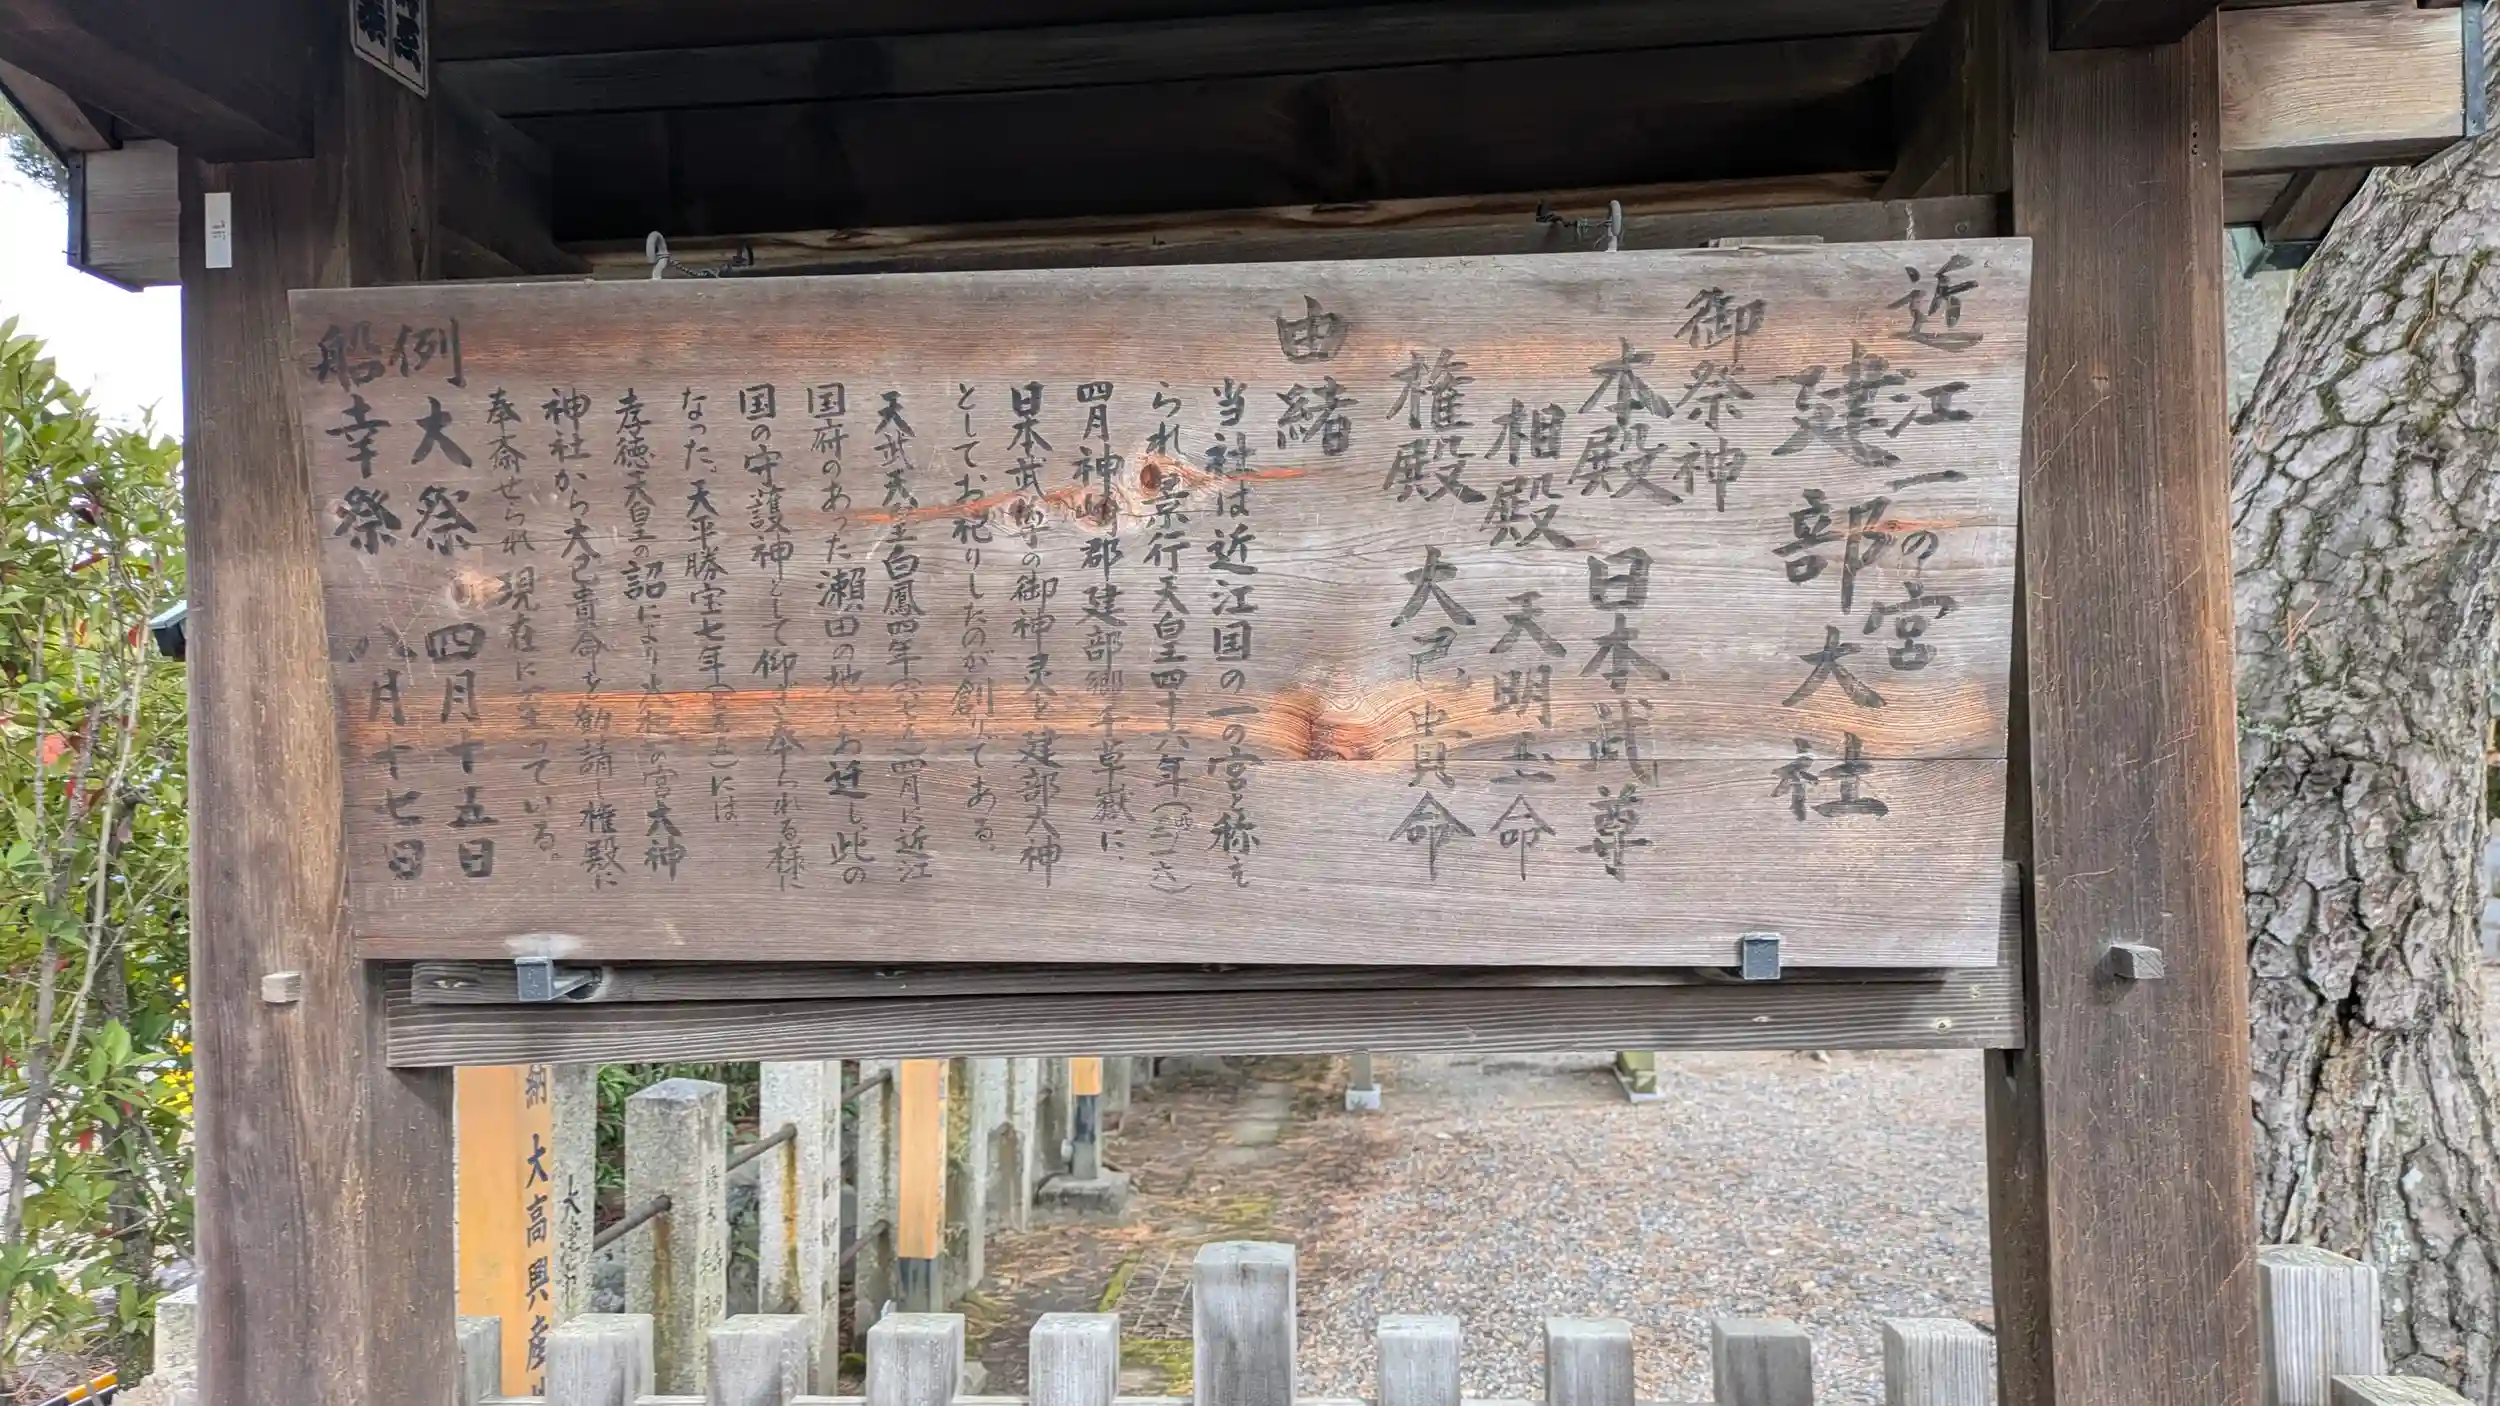 近江一の宮
建部大社
御祭神
本殿 日本武尊
相殿 天明玉命
権殿 大己貴命
由緒
当社は近江国の一の宮と称え
られ 景行天皇四十六年(西三一六)
四月神崎郡建部郷千草嶽に、
日本武尊の御神霊を建部大神
としてお祀りしたのが創りである。
天武天皇白鳳四年(六七五)四月に近江
国府のあった瀬田の地にお迁し此の
国の守護神として仰ぎ奉られる様に
なった。天平勝宝七年(七五五)には
孝徳天皇の詔により大和の宮大神
神社から大己貴命を勧請し権殿に
奉斎せられ 現在に至っている。
例大祭 四月十五日
船幸祭 八月十七日
納 大高興産